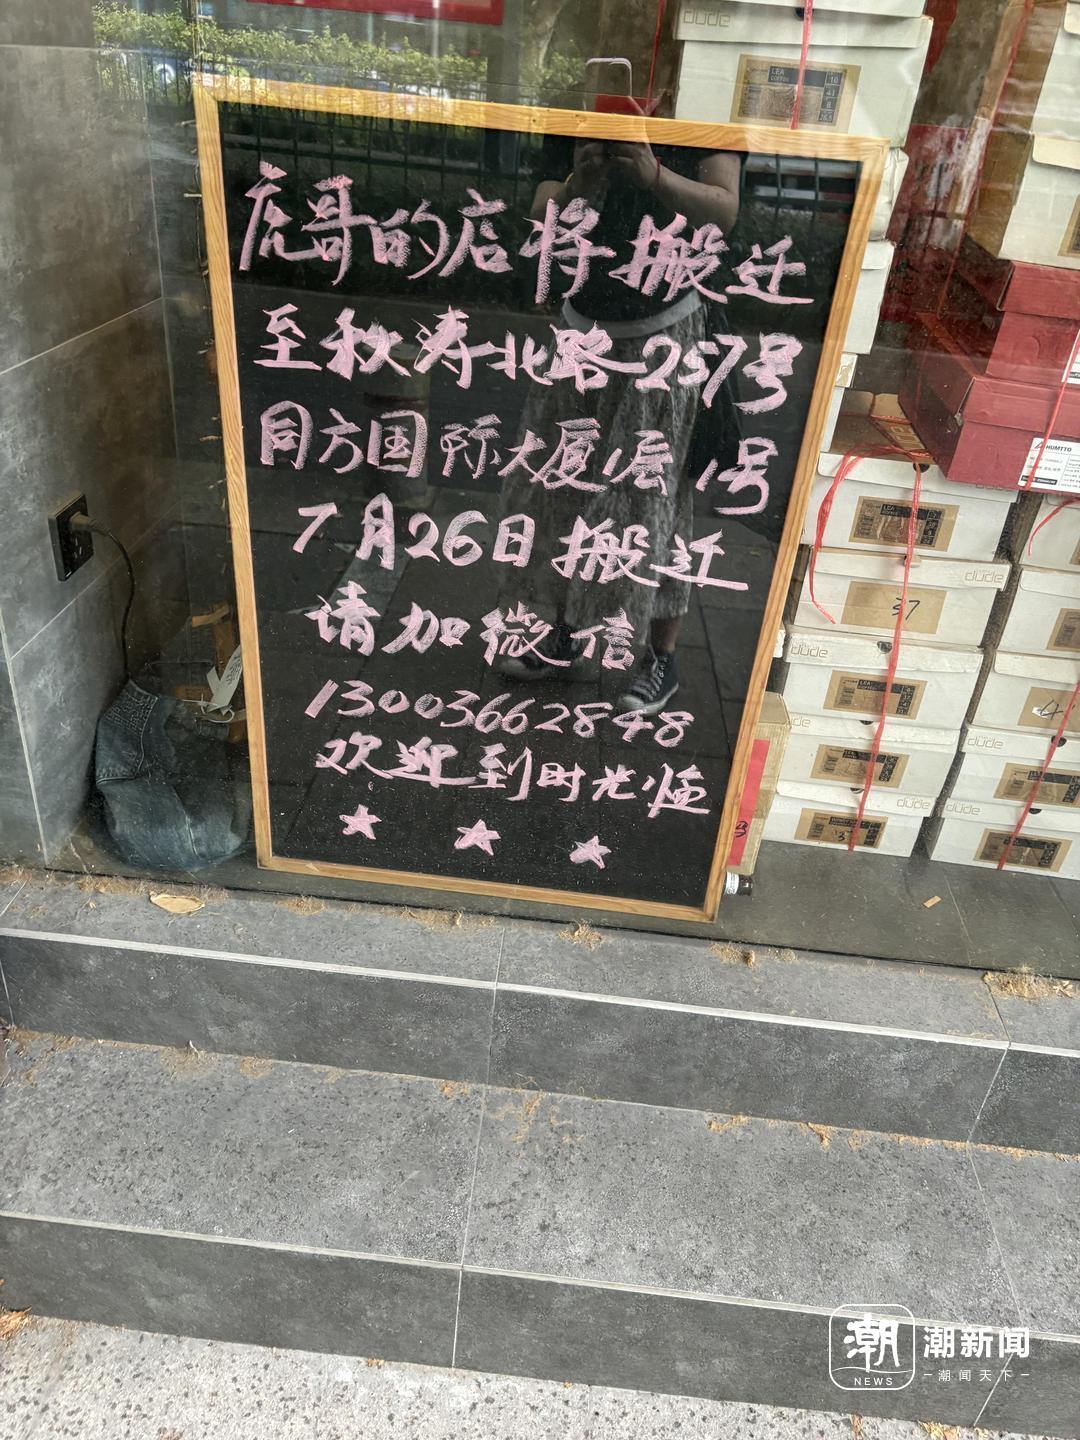 虎哥的店将搬迁
至秋涛北路257号
同方国际大厦1层1号
7月26日搬迁
请加微信
13003662848
欢迎到时光临
dude
LEA
COFFEE
10
41
8
HUMTTO
LEA
dude
37
dude
LEA
dude
dude
dude
dude
潮
NEWS
潮新闻
潮闻天下